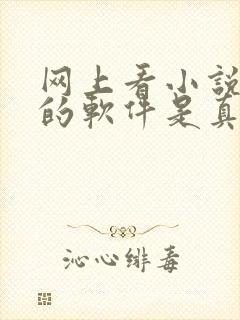 网上看小説
的軟件是真
沁心緋毒